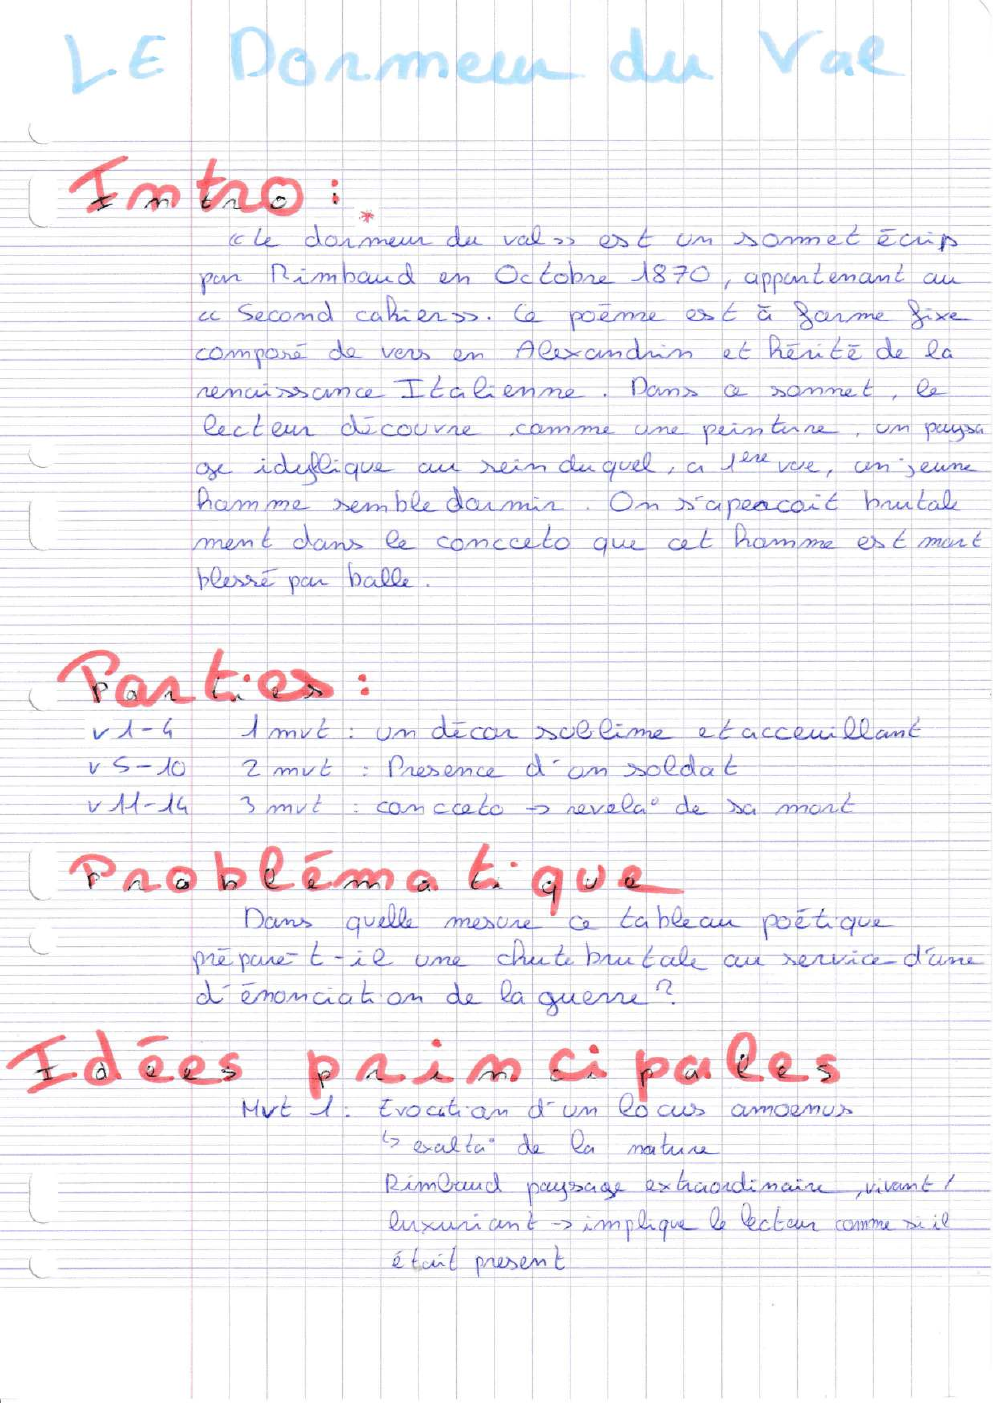 LE Dormeur du Val
Intro :
*
« Le dormeur du val » est un sonnet écrip
par Rimbaud en Octobre 1870, appartenant au
« Second cahier ». Ce poème est à forme fixe
composé de vers en Alexandrin et hérité de la
renaissance Italienne. Dans ce sonnet, le
lecteur découvre, comme une peinture, un paysa
ge idyllique au sein duquel, a 1ere vue, un jeune
homme semble dormir. On s'apercoit brutale
ment dans le concceto que cet homme est mort
blessé par balle.
Parties :
v 1-4 1 mvt : un décor sublime et acceuillant
v 5-10 2 mvt : Presence d'un soldat
v 11-14 3 mvt : conccato → revela° de sa mort
Problématique
Dans quelle mesure ce tableau poétique
prépare-t-il une chute brutale au service d'une
d'énonciation de la guerre ?
Idées principales
Mvt 1 : Evocation d'un locus amoenus
↳ exalta° de la nature
Rimbaud paysage extraordinaire, vivant /
luxuriant → implique le lecteur comme si il
était present